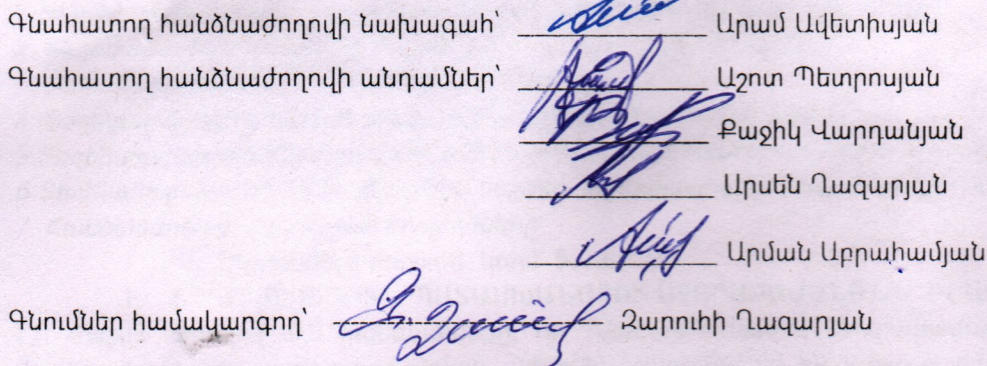 Գնահատող հանձնաժողովի նախագահ՝ Արամ Ավետիսյան
Գնահատող հանձնաժողովի անդամներ՝ Աշոտ Պետրոսյան
Քաջիկ Վարդանյան
Արսեն Ղազարյան
Արման Աբրահամյան
Գնումներ համակարգող՝ Զարուհի Ղազարյան